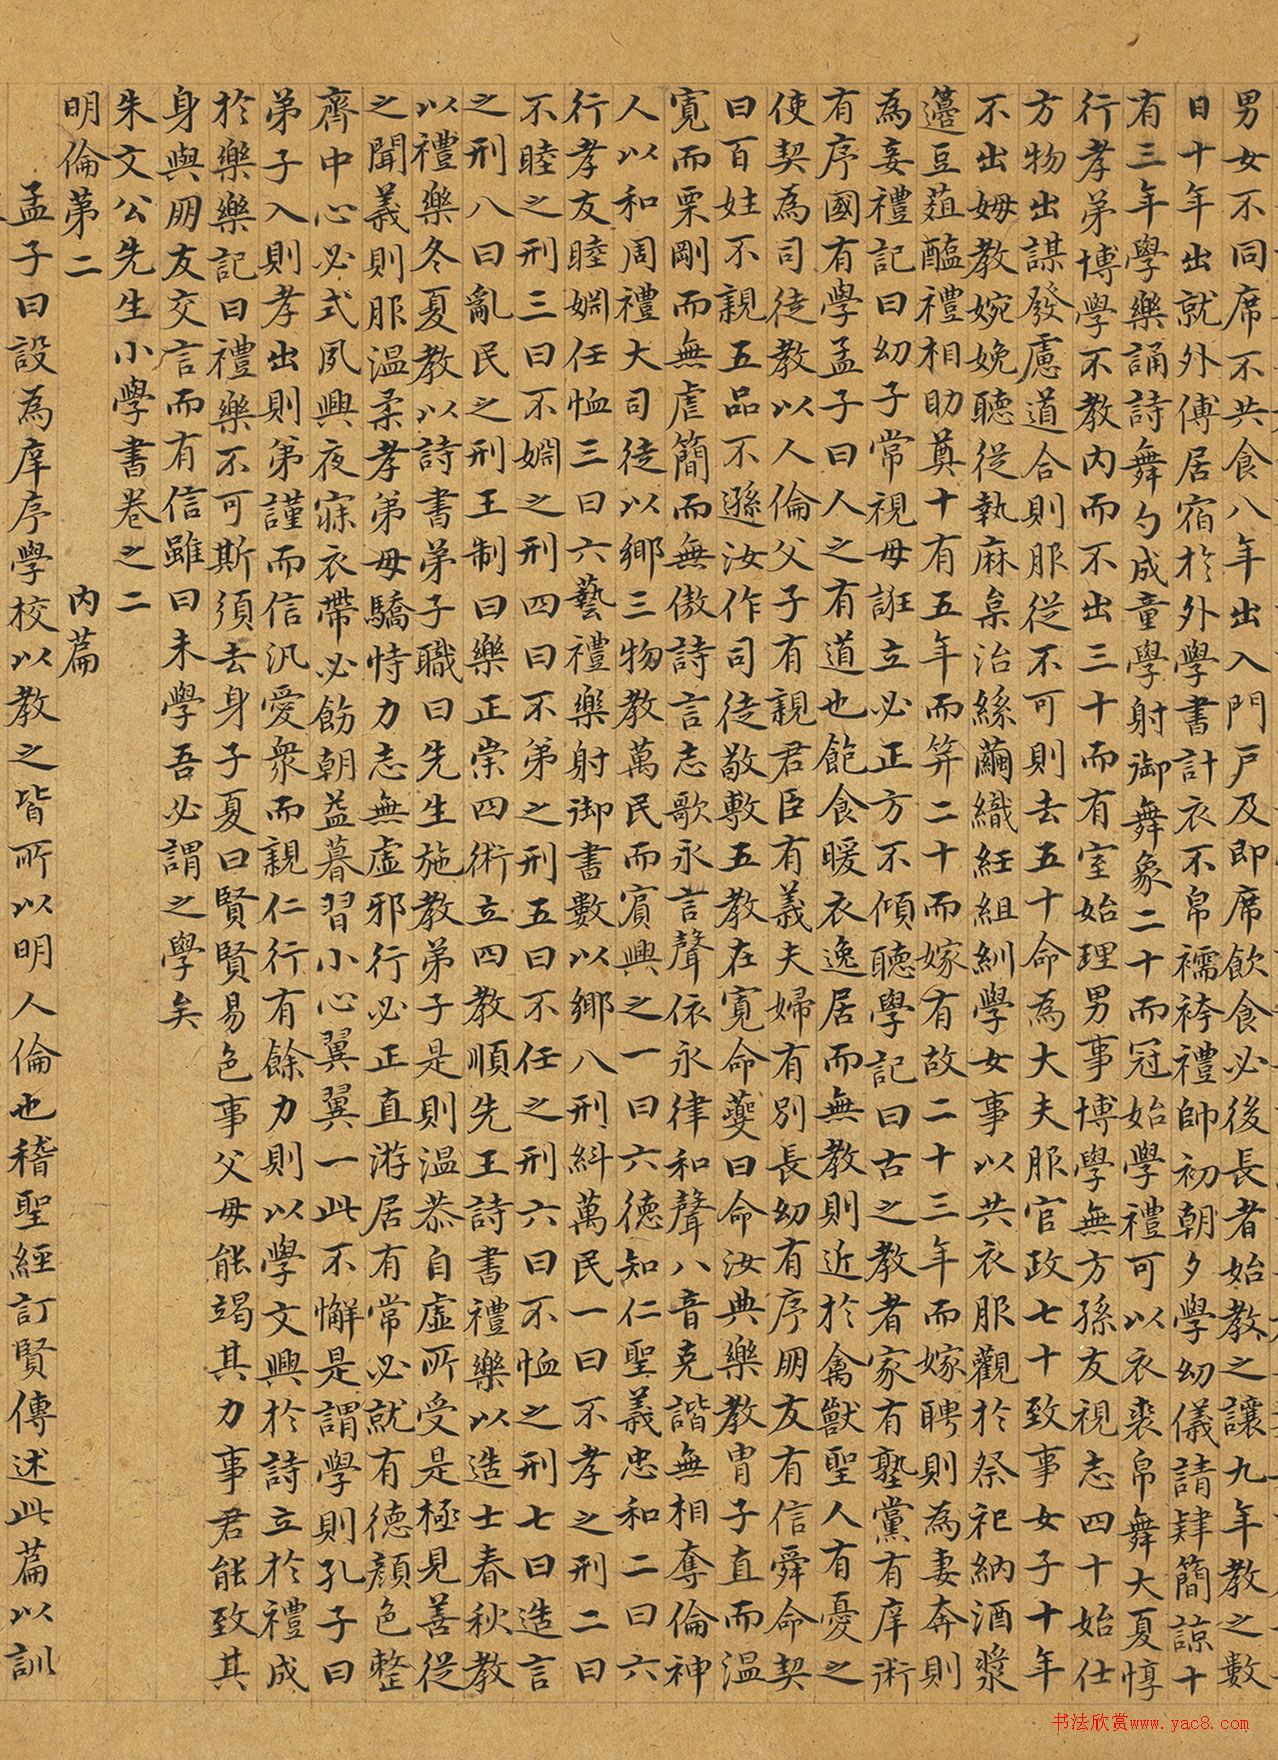 男女不同席不共食八年出入門戶及即席飲食必後長者始教之讓九年教之數
日十年出就外傅居宿於外學書計衣不帛襦袴禮帥初朝夕學幼儀請肄簡諒十
有三年學樂誦詩舞勺成童學射御舞象二十而冠始學禮可以衣裘帛舞大夏惇
行孝弟博學不教內而不出三十而有室始理男事博學無方孫友視志四十始仕
方物出謀發慮道合則服從不可則去五十命為大夫服官政七十致事女子十年
不出姆教婉娩聽從執麻枲治絲繭織紝組紃學女事以共衣服觀於祭祀納酒漿
籩豆菹醢禮相助奠十有五年而笄二十而嫁有故二十三年而嫁聘則為妻奔則
為妾禮記曰幼子常視毋誑立必正方不傾聽學記曰古之教者家有塾黨有庠術
有序國有學孟子曰人之有道也飽食暖衣逸居而無教則近於禽獸聖人有憂之
使契為司徒教以人倫父子有親君臣有義夫婦有別長幼有序朋友有信舜命契
曰百姓不親五品不遜汝作司徒敬敷五教在寬命夔曰命汝典樂教胄子直而溫
寬而栗剛而無虐簡而無傲詩言志歌永言聲依永律和聲八音克諧無相奪倫神
人以和周禮大司徒以鄉三物教萬民而賓興之一曰六德知仁聖義忠和二曰六
行孝友睦婣任恤三曰六藝禮樂射御書數以鄉八刑糾萬民一曰不孝之刑二曰
不睦之刑三曰不婣之刑四曰不弟之刑五曰不任之刑六曰不恤之刑七曰造言
之刑八曰亂民之刑王制曰樂正崇四術立四教順先王詩書禮樂以造士春秋教
以禮樂冬夏教以詩書弟子職曰先生施教弟子是則温恭自虛所受是極見善從
之聞義則服温柔孝弟毋驕恃力志無虛邪行必正直游居有常必就有德顏色整
齊中心必式夙興夜寐衣帶必飭朝益暮習小心翼翼一此不懈是謂學則孔子曰
弟子入則孝出則弟謹而信汎愛衆而親仁行有餘力則以學文興於詩立於禮成
於樂樂記曰禮樂不可斯須去身子夏曰賢賢易色事父母能竭其力事君能致其
身與朋友交言而有信雖曰未學吾必謂之學矣
朱文公先生小學書卷之二
明倫第二 內篇
孟子曰設為庠序學校以教之皆所以明人倫也稽聖經訂賢傳述此篇以訓
书法欣赏www.yac8.com